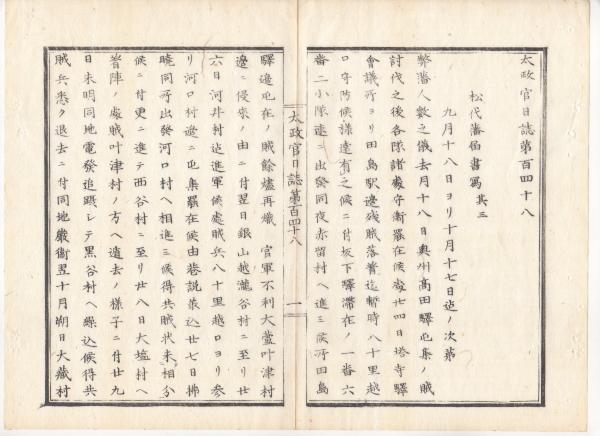 太政官日誌第百四十八
松代藩届書寫 其三
九月十八日ヨリ十月十七日迠ノ次第
弊藩人數之儀去月十八日奥州高田驛屯集ノ賊
討伐之後各隊諸處守衞罷在候處廿四日塔寺驛
會議所ヨリ田島駅邊残賊落着迠暫時八十里越
口守防候樣達有之候ニ付坂下驛滞在ノ一番六
番二小隊速ニ出發同夜赤留村ヘ進ミ候所田島
太政官日誌第百四十八
一
驛邊屯在ノ賊餘燼再熾 官軍不利大藎叶津村
邊ニ侵來ノ由ニ付翌日銀山越瀧谷村ニ至リ廿
六日河井村迠進軍候處賊兵八十里越口ヨリ参
リ河口村邊ニ屯集罷在候由巷説承込廿七日拂
曉同所出發河口村ヘ相進ミ候得共賊状未相分
候ニ付更ニ進テ西谷村ニ至リ廿八日大塩村ヘ
着陣ノ處賊叶津村ノ方ヘ遁去ノ樣子ニ付廿九
日未明同地電發追躡シテ黒谷村ヘ繰込候得共
賊兵悉ク退去ニ付同地嚴衞翌十月朔日大藏村